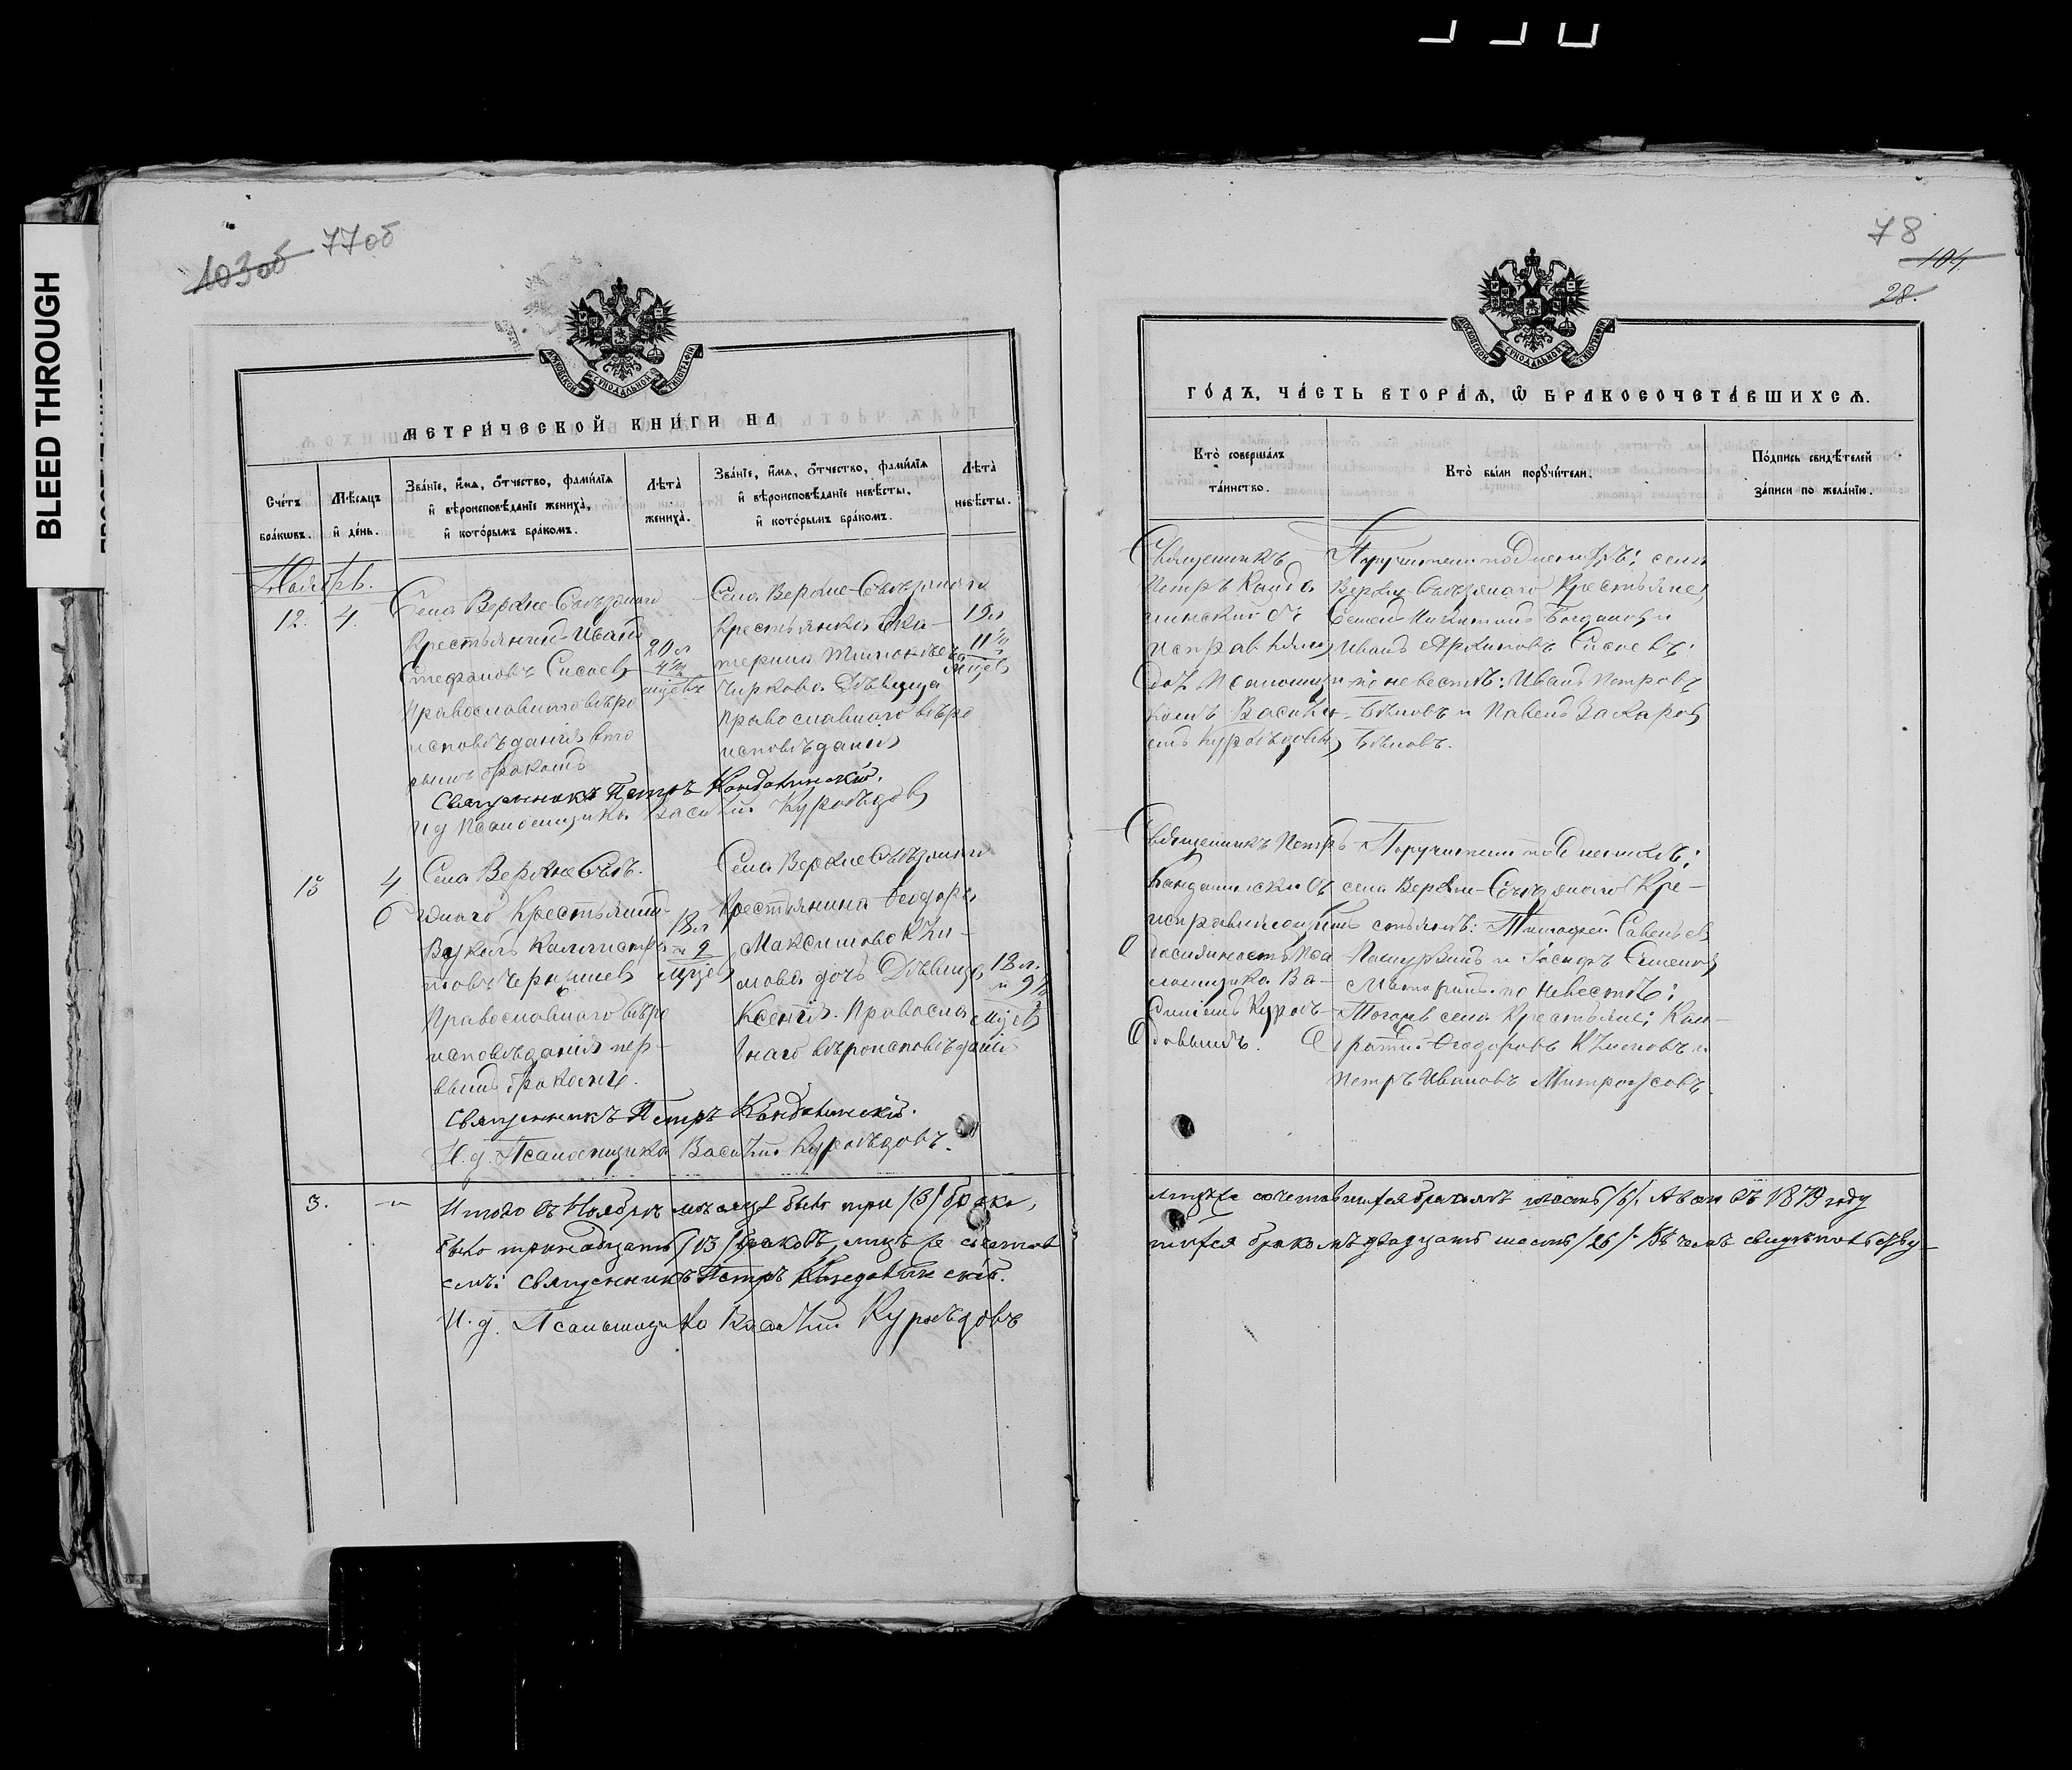 BLEED THROUGH
103об 77об
МОСКОВСКОЙ СѴНОДАЛЬНОЙ ТИПОГРАФІИ
МЕТРИ́ЧЕСКОЙ КНИ́ГИ НА
Сче́тъ бра́кωвъ.
Мѣ́сяцъ и҆ де́нь.
Зва́нїе, и҆́мѧ, ѻ҆́тчество, фами́лїѧ и҆ вѣроисповѣ́данїе жениха̀, и҆ кото́рымъ бра́комъ.
Лѣ̀та жениха̀.
Зва́нїе, и҆́мѧ, ѻ҆́тчество, фами́лїѧ и҆ вѣроисповѣ́данїе невѣ́сты, и҆ кото́рымъ бра́комъ.
Лѣ̀та невѣ́сты.
Ноябрь.
12. 4.
Села Верхне-Съѣзжаго
Крестьянинъ Иванъ
Стефановъ Сисоевъ
Православнаго вѣро
исповѣданія вто
рымъ бракомъ
20 л
мцевъ
Села Верхне-Съѣзжаго
Крестьянка Ека-
терина
Чиркова Дѣвица
православнаго вѣро
исповѣданія
19 л
11
мцев
Священникъ Петръ Кандалинскій.
И д Псаломщика Василій Куроѣдовъ
13 4
6
Села Верхне Съѣз-
жаго Крестьянинъ
Вуколъ Каллистра
товъ Чернышев
Православнаго вѣро
исповѣданія пер-
вымъ бракомъ.
18 л
и 9
мцев
Села Верхне Съѣзжаго
Крестьянина Ѳеодора
Максимова
мова дочь Дѣвица
Ксенія. Правосла
внаго вѣроисповѣданія
18 л.
и 9
мцевъ
Священникъ Петръ Кандалинскій.
И. д. Псаломщика Василій Куроѣдовъ.
3. -"-
Итого въ Ноябрѣ мѣсяцѣ было три /3/ брака,
было тринадцать /13/ браковъ, лицъ же сочетав
емъ: Священникъ Петръ Кандалинскій.
И. д. Псаломщика Василій Куроѣдовъ
78
104
28.
МОСКОВСКОЙ СѴНОДАЛЬНОЙ ТИПОГРАФІИ
ГО́ДЪ, ЧА́СТЬ ВТОРА́Ѧ, Ѽ БРАКОСОЧЕТА́ВШИХСѦ.
Кто̀ соверша́лъ та́инство.
Кто̀ бы́ли порꙋчи́тели.
По́дпись свидѣ́телей за́писи по жела́нїю.
Священникъ
Петръ Канда
линскій съ
исправляю
д. Псаломщи
комъ Василі
емъ Куроѣдовы
Поручители по женихѣ: села
Верхне-Съѣзжаго Крестьяне
Семенъ Никитинъ Богдановъ и
Иванъ Архиповъ Сисоевъ;
по невестѣ: Иванъ Петровъ
Бѣловъ и Павелъ Захаровъ
Бѣловъ.
Священникъ Петръ
Кандалинскій съ
исправляющимъ
должность Пса
ломщика Ва-
силіемъ Куроѣ-
довымъ.
Поручители по женихѣ:
села Верхне-Съѣзжаго Кре-
стьяне: Тимофей Савельев
и Іасафъ Семеновъ
по невестѣ:
Тогожъ села Крестьяне; Кон-
дратій Ѳеодоровъ и
Петръ Ивановъ Митрофановъ.
лицъ же сочетавшихся бракомъ шесть /6/. А всего въ 1879 году
шихся бракомъ двадцать шесть /26/. Въ чемъ свидѣтельству-